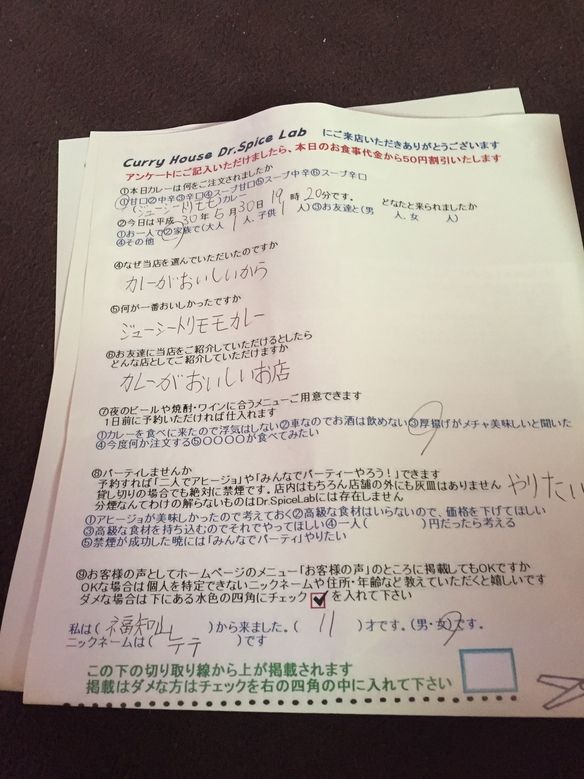 Curry House Dr.Spice Lab にご来店いただきありがとうございます
アンケートにご記入いただけましたら、本日のお食事代金から50円割引いたします
①本日カレーは何をご注文されましたか
①甘口②中辛③辛口④スープ甘口⑤スープ中辛⑥スープ辛口
(ジューシートリモモ)カレー
②今日は平成 30年 5月 30日 19時 20分です。 どなたと来られましたか
①お一人で②家族で(大人 1 人、子供 1 人)③お友達と(男 人、女 人)
④その他
④なぜ当店を選んでいただいたのですか
カレーがおいしいから
⑤何が一番おいしかったですか
ジューシートリモモカレー
⑥お友達に当店をご紹介していただけるとしたら
どんな店としてご紹介していただけますか
カレーがおいしいお店
⑦夜のビールや焼酎・ワインに合うメニューご用意できます
1日前に予約いただければ仕入れます
①カレーを食べに来たので浮気はしない②車なのでお酒は飲めない③厚揚げがメチャ美味しいと聞いた
④今度何か注文する⑤〇〇〇〇が食べてみたい
⑧パーティしませんか
予約すれば「二人でアヒージョ」や「みんなでパーティーやろう!」できます
貸し切りの場合でも絶対に禁煙です。店内はもちろん店舗の外にも灰皿はありません
やりたい
分煙なんてわけの解らないものはDr.SpiceLabには存在しません
①アヒージョが美味しかったので考えておく②高級な食材はいらないので、価格を下げてほしい
③高級な食材を持ち込むのでそれでやってほしい④一人( )円だったら考える
⑤禁煙が成功した暁には「みんなでパーティ」やりたい
⑨お客様の声としてホームページのメニュー「お客様の声」のところに掲載してもOKですか
OKな場合は個人を特定できないニックネームや住所・年齢など教えていただくと嬉しいです
ダメな場合は下にある水色の四角にチェック を入れて下さい
私は( 福知山 )から来ました。( 11 )才です。(男・女)です。
ニックネームは( テテ )です
この下の切り取り線から上が掲載されます
掲載はダメな方はチェックを右の四角の中に入れて下さい